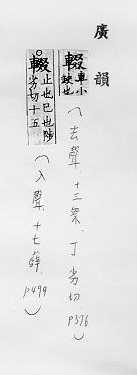 廣韻
輟 車小
缺也
(去聲.十三祭.丁劣切
P376)
輟 止也已也陟
劣切十五
(入聲.十七薛.
P499)